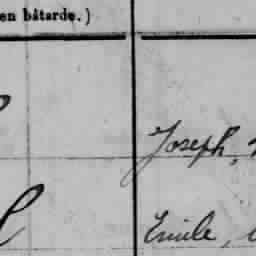 en bâtarde.)
Joseph,
Emile,